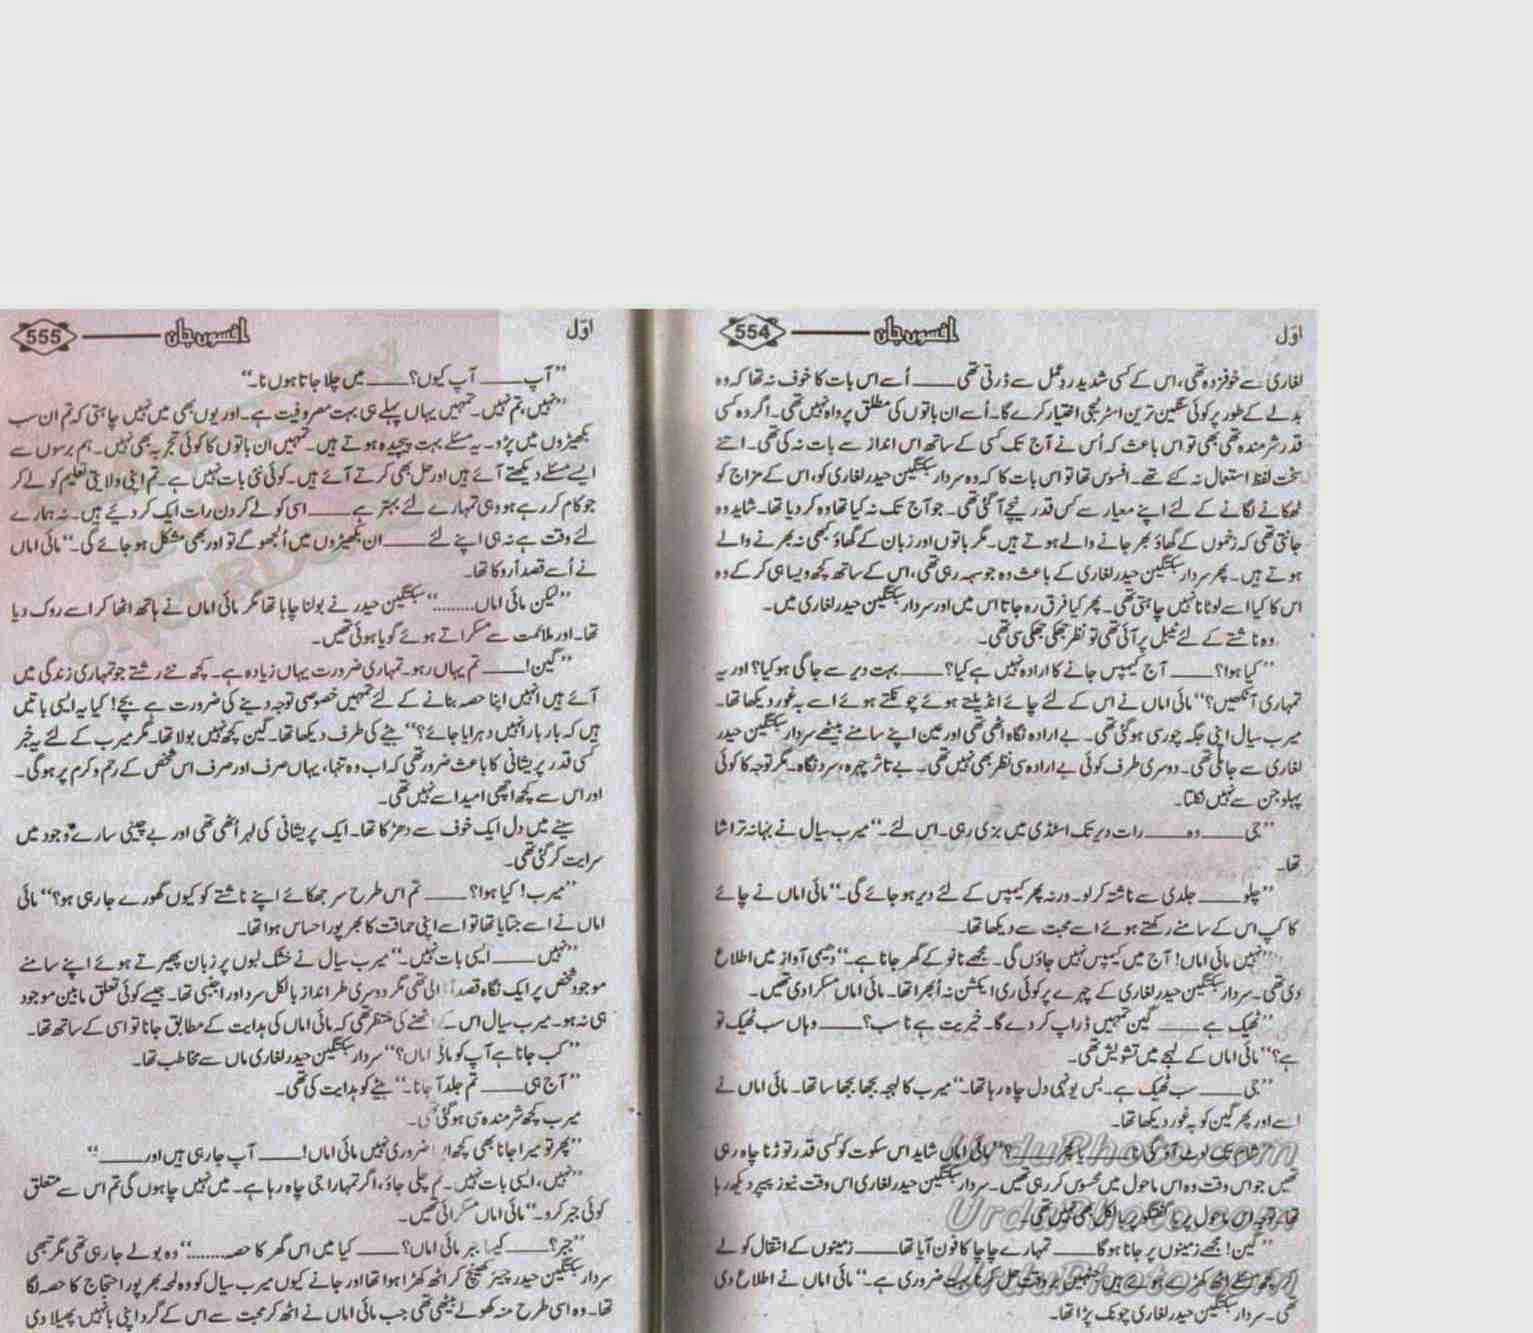 اوّل افسوں جان 554
لغاری سے خوفزدہ تھی، اس کے کسی شدید ردِعمل سے ڈرتی تھی ____ اُسے اس بات کا خوف نہ تھا کہ وہ
بدلے کے طور پر کوئی سنگین ترین اسٹریٹجی اختیار کرے گا۔ اُسے ان باتوں کی مطلق پرواہ نہیں تھی۔ اگر وہ کسی
قدر شرمندہ تھی بھی تو اس باعث کہ اُس نے آج تک کسی کے ساتھ اس انداز سے بات نہ کی تھی۔ اتنے
سخت لفظ استعمال نہ کئے تھے۔ افسوس تھا تو اس بات کا کہ وہ سردار سبکتگین حیدر لغاری کو، اس کے مزاج کو
ٹھکانے لگانے کے لئے اپنے معیار سے کس قدر نیچے آ گئی تھی۔ جو آج تک نہ کیا تھا وہ کر دیا تھا۔ شاید وہ
جانتی تھی کہ زخموں کے گھاؤ بھر جانے والے ہوتے ہیں۔ مگر باتوں اور زبان کے گھاؤ کبھی نہ بھرنے والے
ہوتے ہیں۔ پھر سردار سبکتگین حیدر لغاری کے باعث وہ جو سہہ رہی تھی، اس کے ساتھ کچھ ویسا ہی کر کے وہ
اس کا کیا اسے لوٹانا نہیں چاہتی تھی۔ پھر کیا فرق رہ جاتا اس میں اور سردار سبکتگین حیدر لغاری میں۔
وہ ناشتے کے لئے ٹیبل پر آئی تھی تو نظر جھکی جھکی سی تھی۔
”کیا ہوا؟ ____ آج کیمپس جانے کا ارادہ نہیں ہے کیا؟ ____ بہت دیر سے جاگی ہو کیا؟ اور یہ
تمہاری آنکھیں؟“ مائی اماں نے اس کے لئے چائے انڈیلتے ہوئے چونکتے ہوئے اسے بہ غور دیکھا تھا۔
میرب سیال اپنی جگہ چور سی ہو گئی تھی۔ بے ارادہ نگاہ اٹھی تھی اور عین اپنے سامنے بیٹھے سردار سبکتگین حیدر
لغاری سے جا ملی تھی۔ دوسری طرف کوئی بے ارادہ سی نظر بھی نہیں تھی۔ بے تاثر چہرہ، سرد نگاہ۔ مگر توجہ کا کوئی
پہلو جن سے نہیں نکلتا۔
”جی ____ وہ ____ رات دیر تک اسٹڈی میں بزی رہی۔ اس لئے۔“ میرب سیال نے بہانہ تراشا
تھا۔
”چلو ____ جلدی سے ناشتہ کر لو۔ ورنہ پھر کیمپس کے لئے دیر ہو جائے گی۔“ مائی اماں نے چائے
کا کپ اس کے سامنے رکھتے ہوئے اسے محبت سے دیکھا تھا۔
”نہیں مائی اماں! آج میں کیمپس نہیں جاؤں گی۔ مجھے نانو کے گھر جانا ہے۔“ دھیمی آواز میں اطلاع
دی تھی۔ سردار سبکتگین حیدر لغاری کے چہرے پر کوئی ری ایکشن نہ اُبھرا تھا۔ مائی اماں مسکرا دی تھیں۔
”ٹھیک ہے ____ گین تمہیں ڈراپ کر دے گا۔ خیریت ہے نا سب؟ ____ وہاں سب ٹھیک تو
ہے؟“ مائی اماں کے لہجے میں تشویش تھی۔
”جی ____ سب ٹھیک ہے۔ بس یونہی دل چاہ رہا تھا۔“ میرب کا لہجہ بجھا بجھا سا تھا۔ مائی اماں نے
اسے اور پھر گین کو بہ غور دیکھا تھا۔
”شام تک لوٹ آؤ گی نا ____ یا پھر ____؟“ مائی اماں شاید اس سکوت کو کسی قدر توڑنا چاہ رہی
تھیں جو اس وقت وہ اس ماحول میں محسوس کر رہی تھیں۔ سردار سبکتگین حیدر لغاری اس وقت نیوز پیپر دیکھ رہا
تھا۔ توجہ اس ماحول پر یا گفتگو پر بالکل بھی نہیں تھی۔
”گین! مجھے زمینوں پر جانا ہوگا ____ تمہارے چاچا کا فون آیا تھا ____ زمینوں کے انتقال کو لے
کر کچھ مسئلے اٹھ کھڑے ہوئے ہیں جنہیں بروقت حل کرنا بہت ضروری ہے۔“ مائی اماں نے اطلاع دی
تھی۔ سردار سبکتگین حیدر لغاری چونک پڑا تھا۔
UrduPhoto.com
UrduPhoto.com
UrduPhoto.com
اوّل افسوں جان 555
”آپ ____ آپ کیوں؟ ____ میں چلا جاتا ہوں نا۔“
”نہیں، تم نہیں۔ تمہیں یہاں پہلے ہی بہت مصروفیت ہے۔ اور یوں بھی میں نہیں چاہتی کہ تم ان سب
بکھیڑوں میں پڑو۔ یہ مسئلے بہت پیچیدہ ہوتے ہیں۔ تمہیں ان باتوں کا کوئی تجربہ بھی نہیں۔ ہم برسوں سے
ایسے مسئلے دیکھتے آئے ہیں اور حل بھی کرتے آئے ہیں۔ کوئی نئی بات نہیں ہے۔ تم اپنی ولایتی تعلیم کو لے کر
جو کام کر رہے ہو وہی تمہارے لئے بہتر ہے ____ اسی کو لے کر دن رات ایک کر دیئے ہیں۔ نہ ہمارے
لئے وقت ہے نہ ہی اپنے لئے ____ ان بکھیڑوں میں اُلجھو گے تو اور بھی مشکل ہو جائے گی۔“ مائی اماں
نے اُسے قصداً روکا تھا۔
”لیکن مائی اماں.........“ سبکتگین حیدر نے بولنا چاہا تھا مگر مائی اماں نے ہاتھ اٹھا کر اسے روک دیا
تھا۔ اور ملائمت سے مسکراتے ہوئے گویا ہوئی تھیں۔
”گین! ____ تم یہاں رہو۔ تمہاری ضرورت یہاں زیادہ ہے۔ کچھ نئے رشتے جو تمہاری زندگی میں
آئے ہیں انہیں اپنا حصہ بنانے کے لئے تمہیں خصوصی توجہ دینے کی ضرورت ہے بچے! کیا یہ ایسی باتیں
ہیں کہ بار بار انہیں دہرایا جائے؟“ بیٹے کی طرف دیکھا تھا۔ گین کچھ نہیں بولا تھا۔ مگر میرب کے لئے یہ خبر
کسی قدر پریشانی کا باعث ضرور تھی کہ اب وہ تنہا، یہاں صرف اور صرف اس شخص کے رحم و کرم پر ہوگی۔
اور اس سے کچھ اچھی امید اسے نہیں تھی۔
سینے میں دل ایک خوف سے دھڑکا تھا۔ ایک پریشانی کی لہر اُٹھی تھی اور بے چینی سارے وجود میں
سرایت کر گئی تھی۔
”میرب! کیا ہوا؟ ____ تم اس طرح سر جھکائے اپنے ناشتے کو کیوں گھورے جا رہی ہو؟“ مائی
اماں نے اسے جتایا تھا تو اسے اپنی حماقت کا بھرپور احساس ہوا تھا۔
”نہیں ____ ایسی بات نہیں۔“ میرب سیال نے خشک لبوں پر زبان پھیرتے ہوئے اپنے سامنے
موجود شخص پر ایک نگاہ قصداً ڈالی تھی مگر دوسری طر انداز بالکل سرد اور اجنبی تھا۔ جیسے کوئی تعلق مابین موجود
ہی نہ ہو۔ میرب سیال اس کے اٹھنے کی منتظر تھی کہ مائی اماں کی ہدایت کے مطابق جانا تو اسی کے ساتھ تھا۔
”کب جانا ہے آپ کو مائی اماں؟“ سردار سبکتگین حیدر لغاری ماں سے مخاطب تھا۔
”آج ہی ____ تم جلد آ جانا۔“ بیٹے کو ہدایت کی تھی۔
میرب کچھ شرمندہ سی ہو گئی تھی۔
”پھر تو میرا جانا بھی کچھ ضروری نہیں مائی اماں! ____ آپ جا رہی ہیں اور ____“
”نہیں، ایسی بات نہیں۔ تم چلی جاؤ، اگر تمہارا جی چاہ رہا ہے۔ میں نہیں چاہوں گی تم اس سے متعلق
کوئی جبر کرو۔“ مائی اماں مسکرائی تھیں۔
”جبر؟ ____ کیسا جبر مائی اماں؟ ____ کیا میں اس گھر کا حصہ........“ وہ بولے جا رہی تھی مگر تبھی
سردار سبکتگین حیدر چیئر کھینچ کر اٹھ کھڑا ہوا تھا اور جانے کیوں میرب سیال کو وہ لمحہ بھرپور احتجاج کا حصہ لگا
تھا۔ وہ اسی طرح منہ کھولے بیٹھی تھی جب مائی اماں نے اٹھ کر محبت سے اس کے گرد اپنی بانہیں پھیلا دی